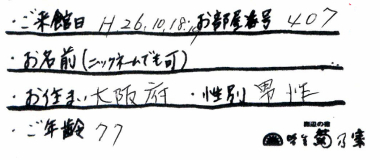 ・ご来館日 H.26.10.18. お部屋番号 407
・お名前(ニックネームでも可)
・お住まい 大阪府 ・性別 男性
・ご年齢 77
海辺の宿